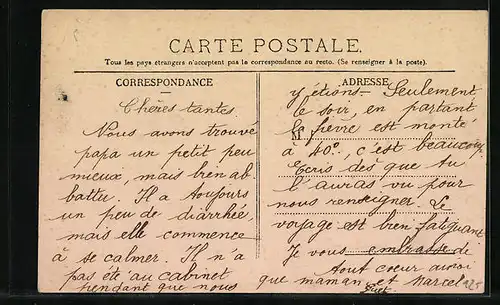 CARTE POSTALE.
Tous les pays étrangers n'acceptent pas la correspondance au recto. (Se renseigner à la poste).
CORRESPONDANCE
Chères tantes.
Nous avons trouvé
papa un petit peu
mieux, mais bien ab-
battu. Il a toujours
un peu de diarrhée,
mais elle commence
à se calmer. Il n'a
pas été au cabinet
pendant que nous
ADRESSE
y étions. Seulement
le soir, en partant
la fièvre est monté
à 40°, c'est beaucoup
Ecris dès que tu
l'auras vu pour
nous renseigner. Le
voyage est bien fatiguant
Je vous embrasse de
tout coeur aussi
que maman et Marcel